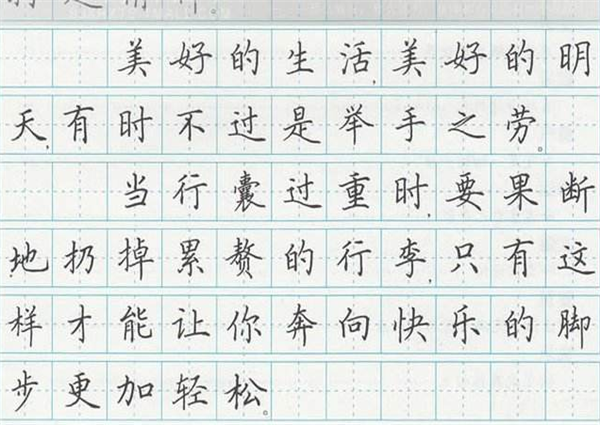 美好的生活,美好的明
天,有时不过是举手之劳。
当行囊过重时,要果断
地扔掉累赘的行李,只有这
样才能让你奔向快乐的脚
步更加轻松。